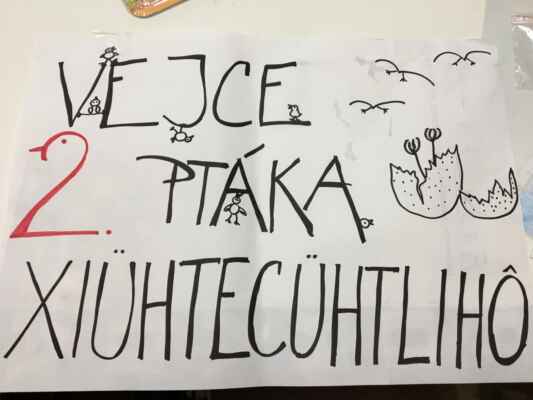 VEJCE
2. PTÁKA
XIÜHTECÜHTLIHÔ